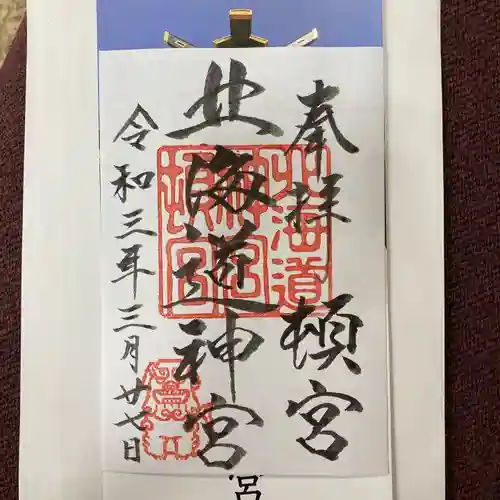 奉拝 頓宮
北海道神宮
令和三年三月廿七日
北海道
神宮
頓宮
宮